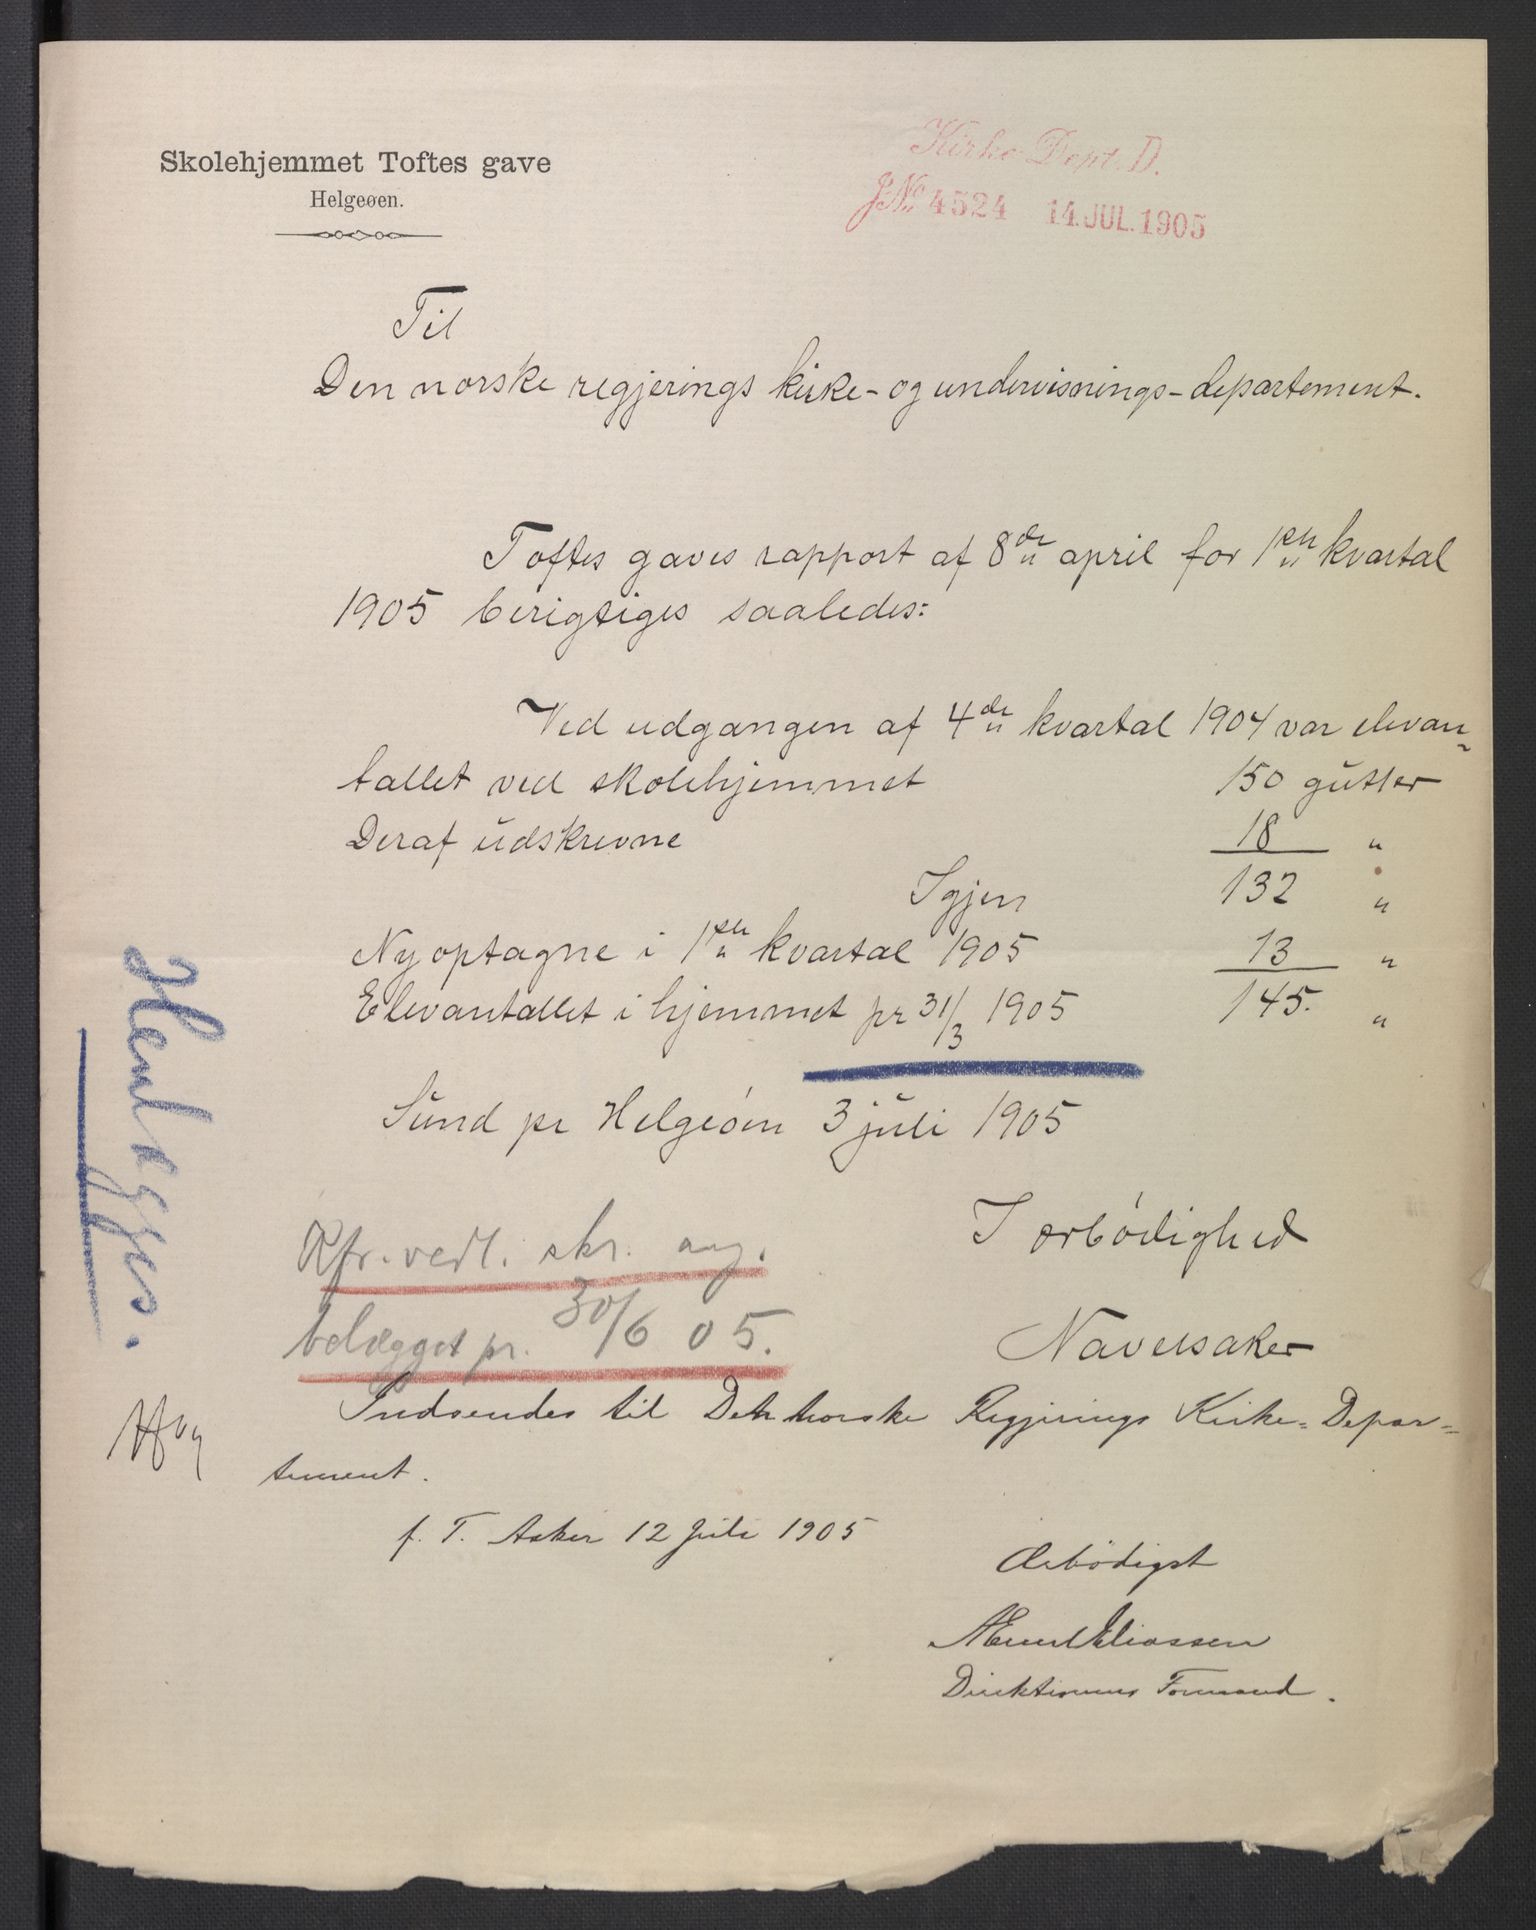 Skolehjemmet Toftes gave
Helgeøen.
Kirke Dept. D.
J.No. 4524 14.JUL.1905
Til
Den norske regjerings kirke- og undervisnings-departement.
Toftes gaves rapport af 8de april for 1ste kvartal
1905 berigtiges saaledes:
Ved udgangen af 4de kvartal 1904 var elevan-
tallet ved skolehjemmet 150 gutter
Deraf udskrevne 18 "
Igjen 132 "
Nyoptagne i 1ste kvartal 1905 13 "
Elevantallet i hjemmet pr 31/3 1905 145. "
Sund pr Helgeøen 3 juli 1905
I ærbødighed
Naversaker
Henlægges.
Kfr. vedl. skr. ang.
belægget pr. 30/6 05.
Indsendes til Den norske Regjerings Kirke-Depar-
tement.
f. T. Asker 12 Juli 1905
Ærbødigst
Eliassen
Direktionens Formand.